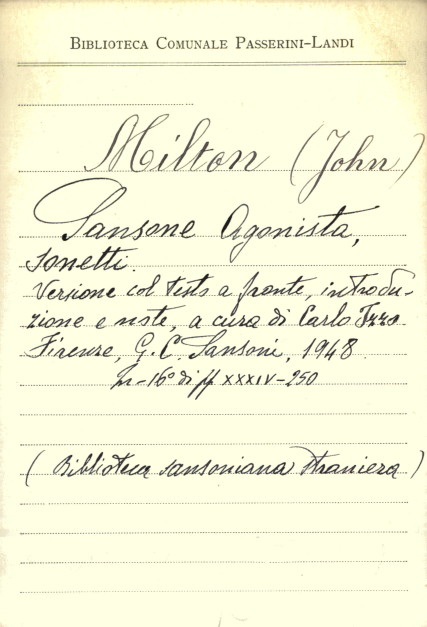 BIBLIOTECA COMUNALE PASSERINI-LANDI
Milton (John)
Sansone Agonista,
sonetti.
Versione col testo a fronte, introdu-
zione e note, a cura di Carlo Izzo.
Firenze, G. C. Sansoni, 1948
In-16° di pp XXXIV-250
(Biblioteca sansoniana straniera)